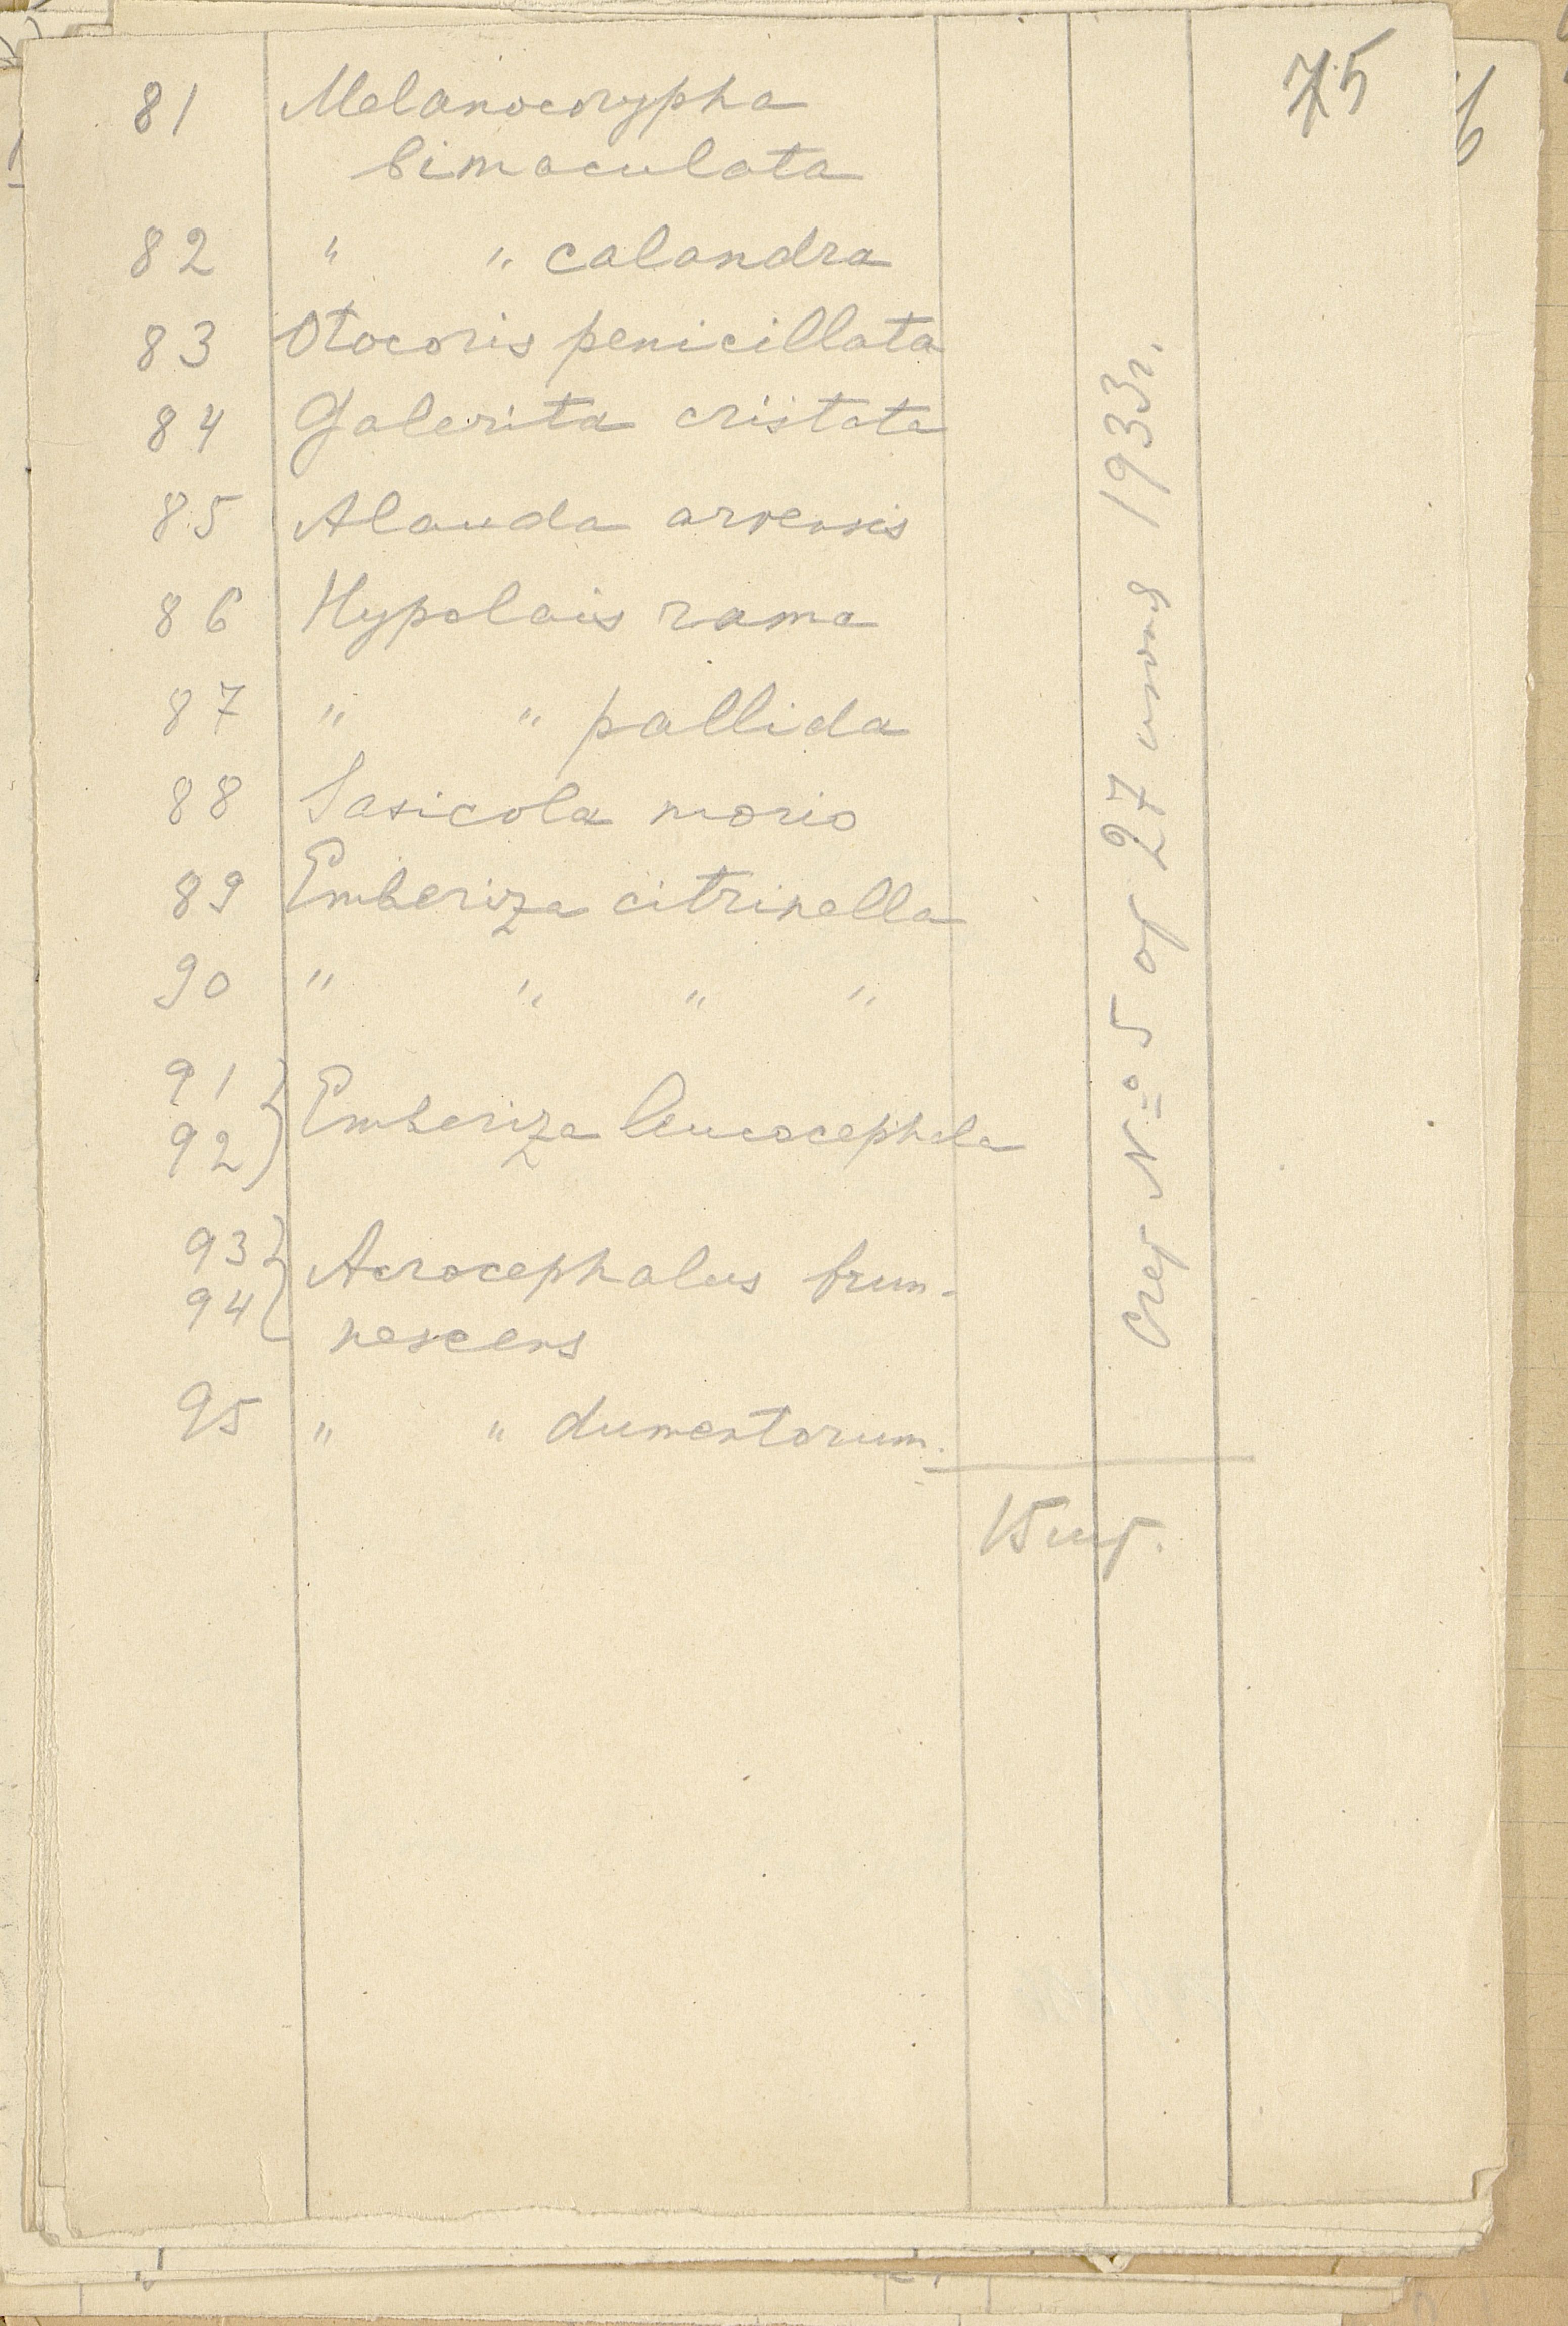 75
81 Melanocorypha
bimaculata
82 " " calandra
83 Otocoris penicillata
84 Galerita cristata
85 Alauda arvensis
86 Hypolais rama
87 " " pallida
88 Saxicola morio
89 Emberiza citrinella
90 " " " "
91
92 } Emberiza leucocephala
93
94 } Acrocephalus brun-
nescens
95 " " dumentorum.
15 шт.
Счет № 5 от 27 июня 1933 г.